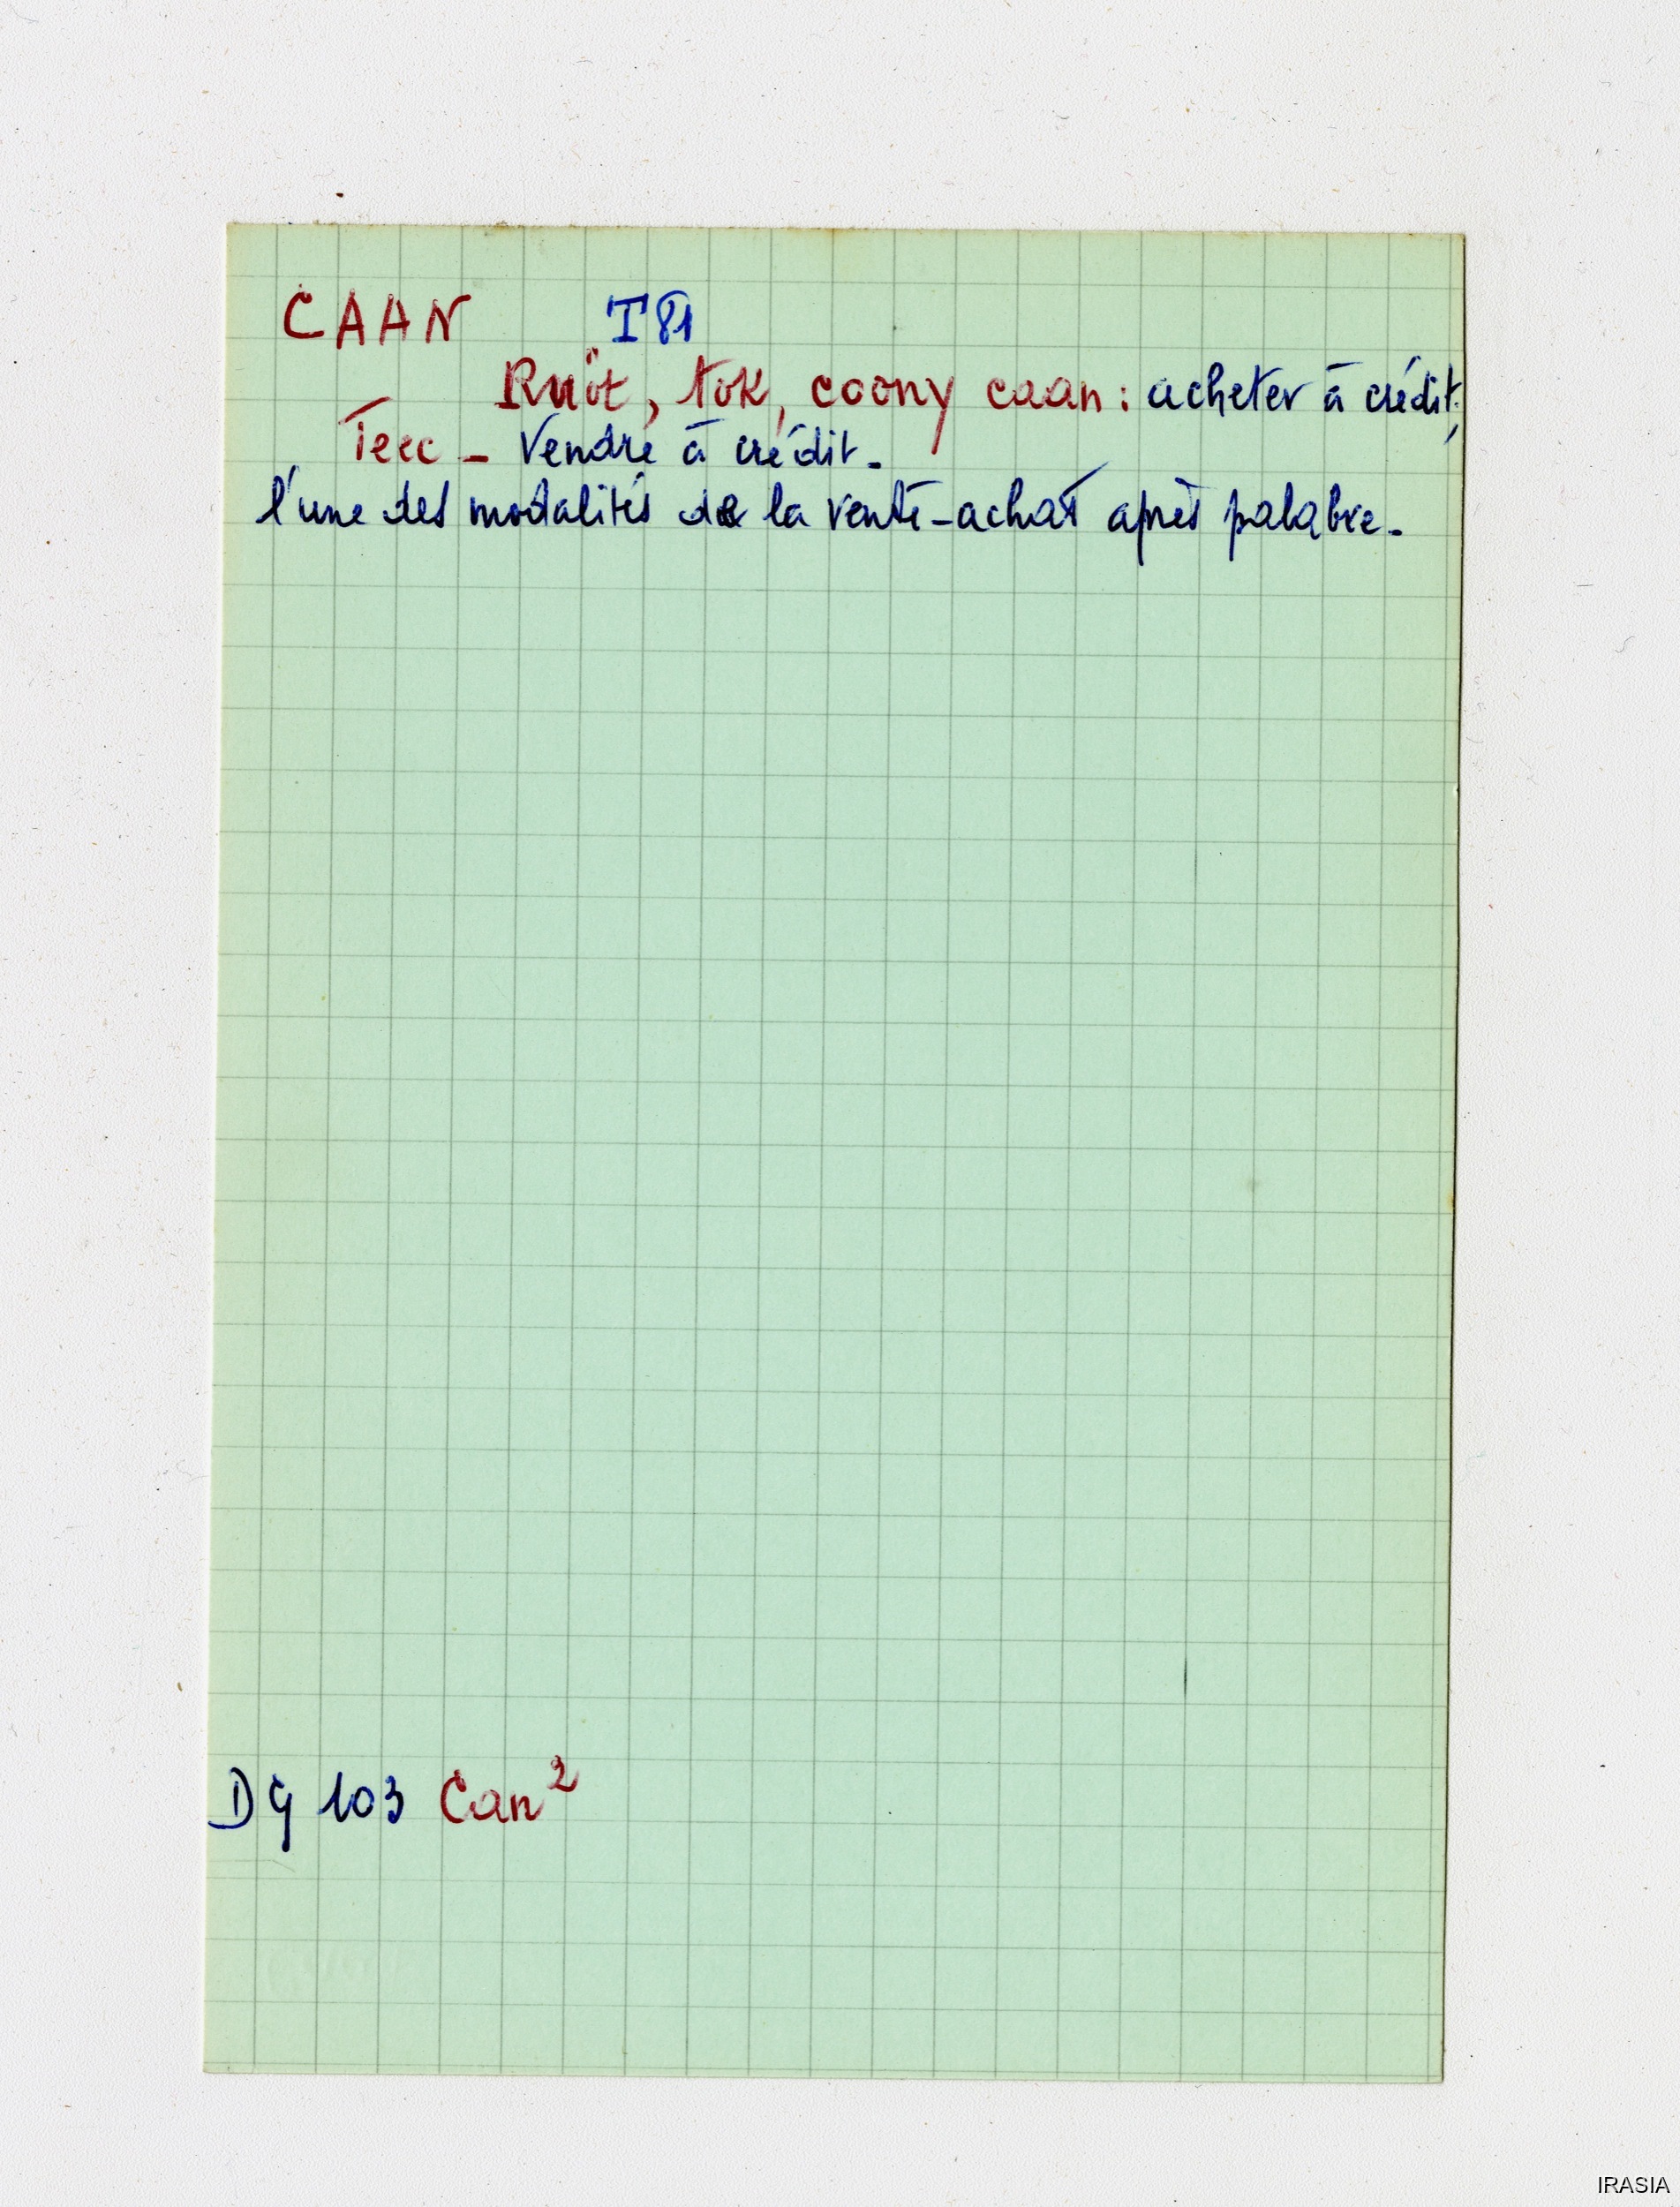 CAAN T 81
Ruöt, tok, coony caan : acheter à crédit;
Teec - Vendre à crédit.
l'une des modalités de la vente-achat après palabre.
DG 103 Can²
IRASIA